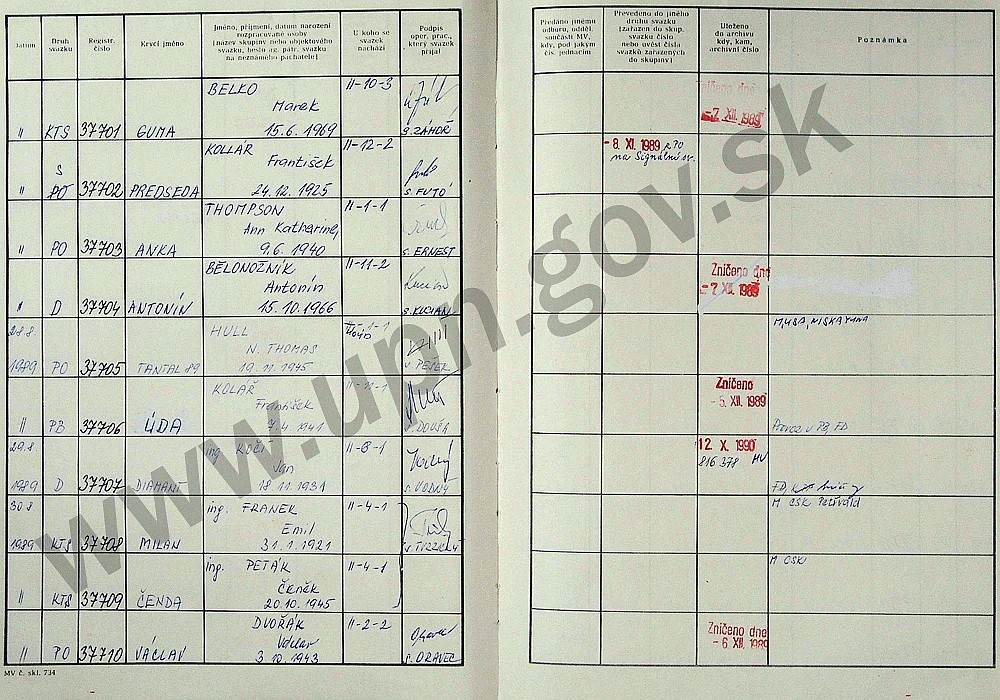 Datum
Druh svazku
Registr. číslo
Krycí jméno
Jméno, příjmení, datum narození
rozpracované osoby
(název skupiny nebo objektového
svazku, heslo ag. pár. svazku
na neznámého pachatele)
U koho se
svazek
nachází
Podpis
oper. prac.,
který svazek
přijal
Předáno jinému
odboru, odděl.
součásti MV,
kdy, pod jakým
čís. jednacím
Převedeno do jiného
druhu svazku
(zařazen do skup.
svazku číslo
nebo uvést čísla
svazků zařazených
do skupiny)
Uloženo
do archivu
kdy, kam,
archivní číslo
Poznámka
BELKO II-10-3
Marek
" KTS 37701 GUMA 15.6.1969 s. ZÁHOŘ
Zničeno dne
-7. XII. 1989
KOLLÁR II-12-2
S František
" PO 37702 PREDSEDA 24.12.1925 s. FUTÓ
- 8. XI. 1989
na Signální sv.
THOMPSON II-1-1
Ann Katharine,
" PO 37703 ANKA 9.6.1940 s. ERNEST
BĚLONOŽNÍK II-11-2
Antonín
" D 37704 ANTONÍN 15.10.1966 s. KUCIAN
Zničeno dne
-7. XII. 1989
28.8. HULL
N. THOMAS
1989 PO 37705 TANTAL 89 19.11.1945 s. PEŠEK
M, USA, NISKAYUNA
KOLÁŘ II-11-1
František
" PB 37706 ÚDA 7.4.1941 s. DOUŠA
Zničeno
- 5. XII. 1989
29.8. ing. KOČÍ II-6-1
Jan
1989 D 37707 DIAMANT 18.11.1931 s. VODNÝ
12. X. 1990
816 378 MV
30.8 ing. FRANEK II-4-1
Emil
1989 KTS 37708 MILAN 31.1.1921
M CSK Petřvald
ing. PETÁK II-4-1
Čeněk
" KTS 37709 ČENDA 20.10.1945
M CSK
DVOŘÁK II-2-2
Václav
" PO 37710 VÁCLAV 3.10.1943 s. ORAVEC
Zničeno dne
- 6. XII. 1989
MV č. skl. 734
www.upn.gov.sk